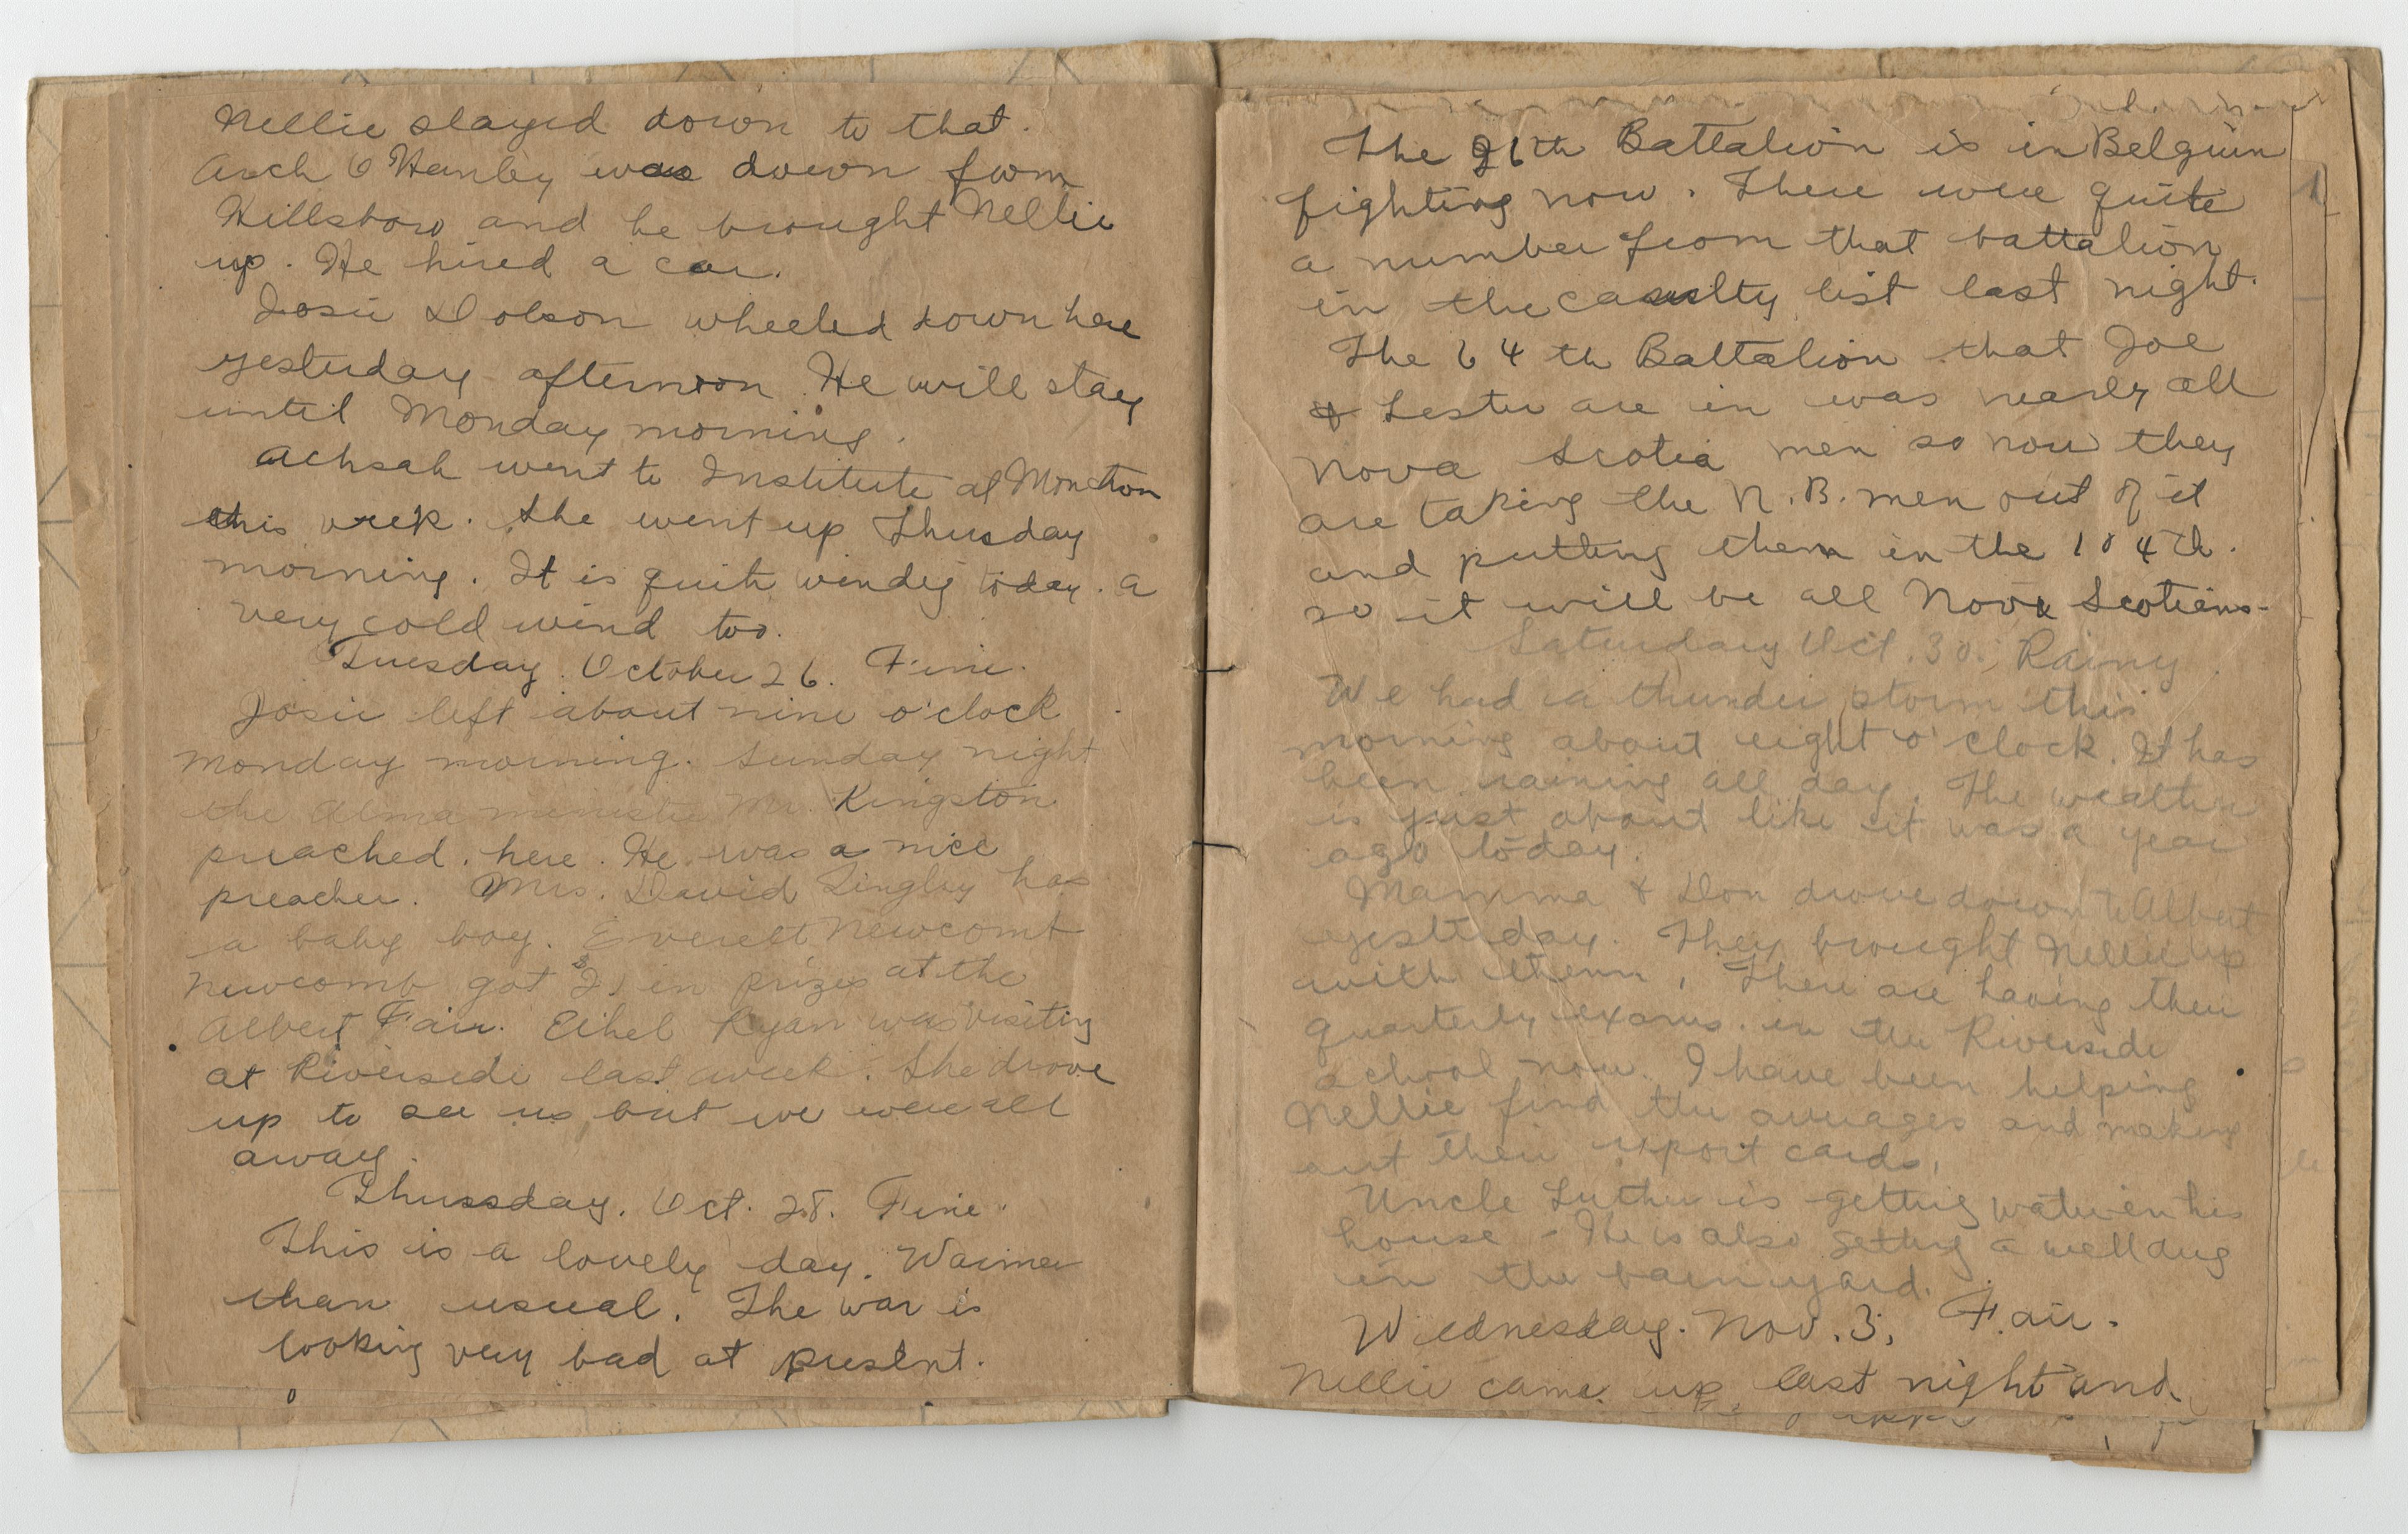 Nellie stayed down to that.
Arch O'Hanley was down from
Hillsboro and he brought Nellie
up. He hired a car.
Josie Dobson wheeled down here
yesterday afternoon. He will stay
until Monday morning.
Achsah went to Institute at Moncton
this week. She went up Thusday
morning. It is quite windy today. A
very cold wind too.
Tuesday. October 26. Fine.
Josie left about nine o'clock
Monday morning. Sunday night
the Alma minister Mr. Kingston
preached here. He was a nice
preacher. Mrs. David Tingley has
a baby boy. Everett Newcomb
Newcomb got $21 in prizes at the
Albert Fair. Ethel Ryan was visiting
at Riverside last week. She drove
up to see us but we were all
away.
Thursday. Oct. 28. Fine.
This is a lovely day. Warmer
than usual. The war is
looking very bad at present.
The 26th Battalion is in Belguim
fighting now. There were quite
a number from that battalion
in the casualty list last night.
The 64th Battalion that Joe
& Lester are in was nearly all
Nova Scotia men so now they
are taking the N.B. men out of it
and putting them in the 104th.
so it will be all Nova Scotians.
Saturday Oct. 30. Rainy.
We had a thunder storm this
morning about eight o'clock. It has
been raining all day. The weather
is just about like it was a year
ago today.
Mamma & Don drove down to Albert
yesterday. They brought Nellie up
with them. There are having their
quarterly exams. in the Riverside
school now. I have been helping
Nellie find the averages and making
out their report cards.
Uncle Luther is getting water in his
house - He is also getting a well dug
in the barnyard.
Wednesday. Nov. 3. Fair.
Nellie came up last night and